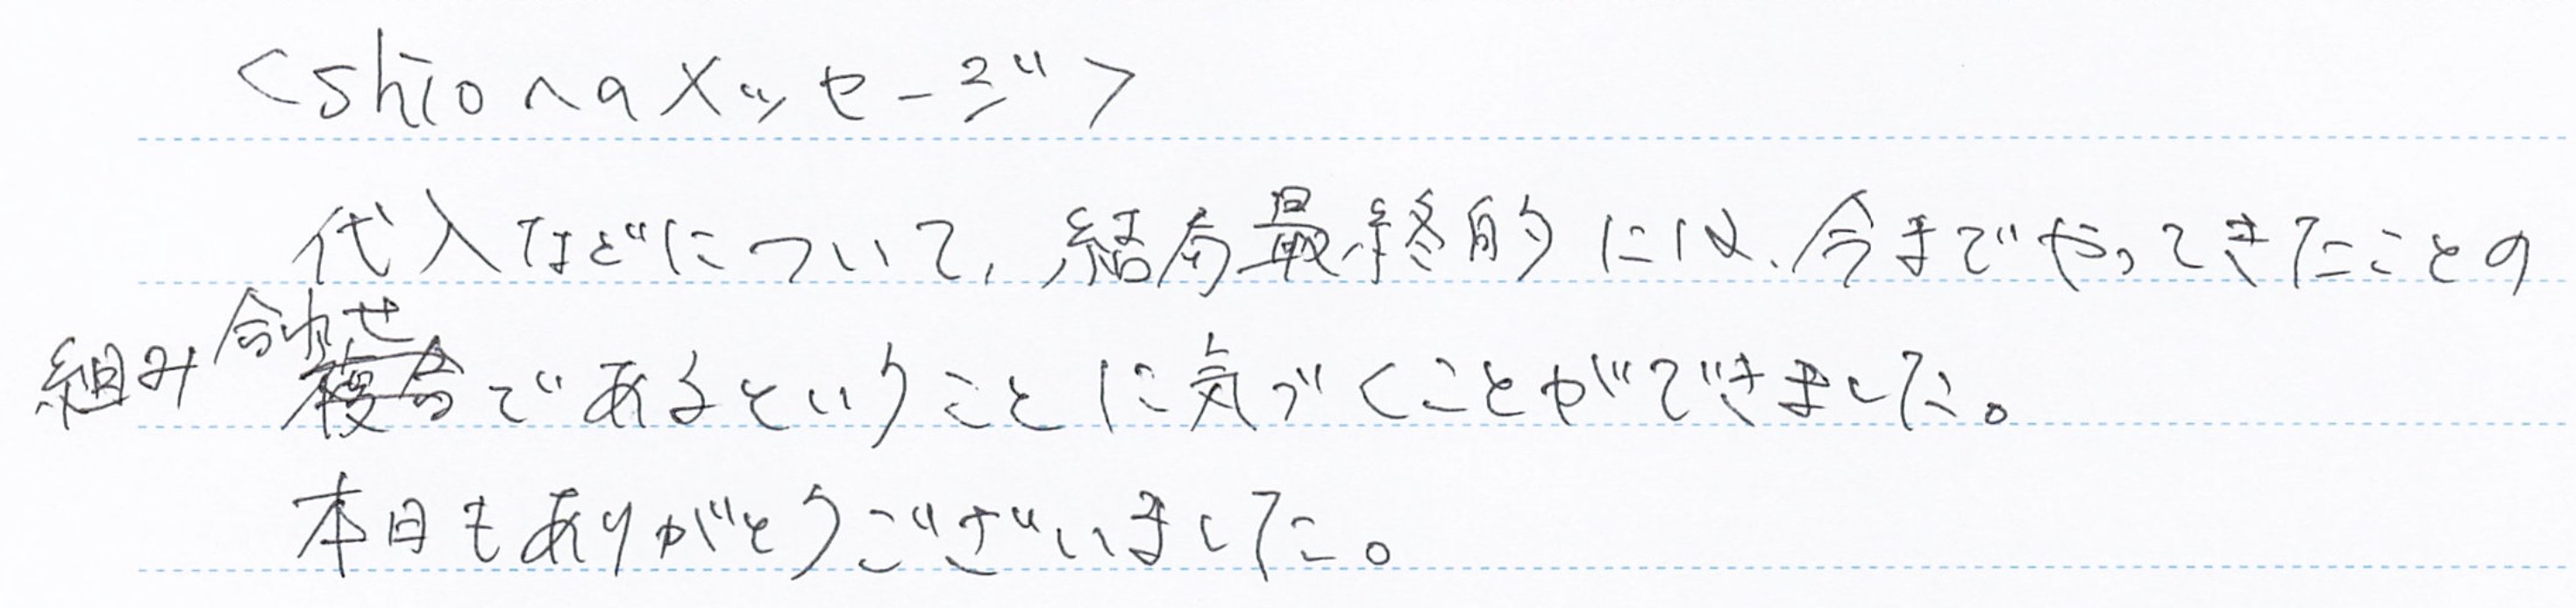 <shionaメッセージ>
代入などについて、結局最終的には、今までやってきたことの
組み合わせであるということに気づくことができました。
本日もありがとうございました。